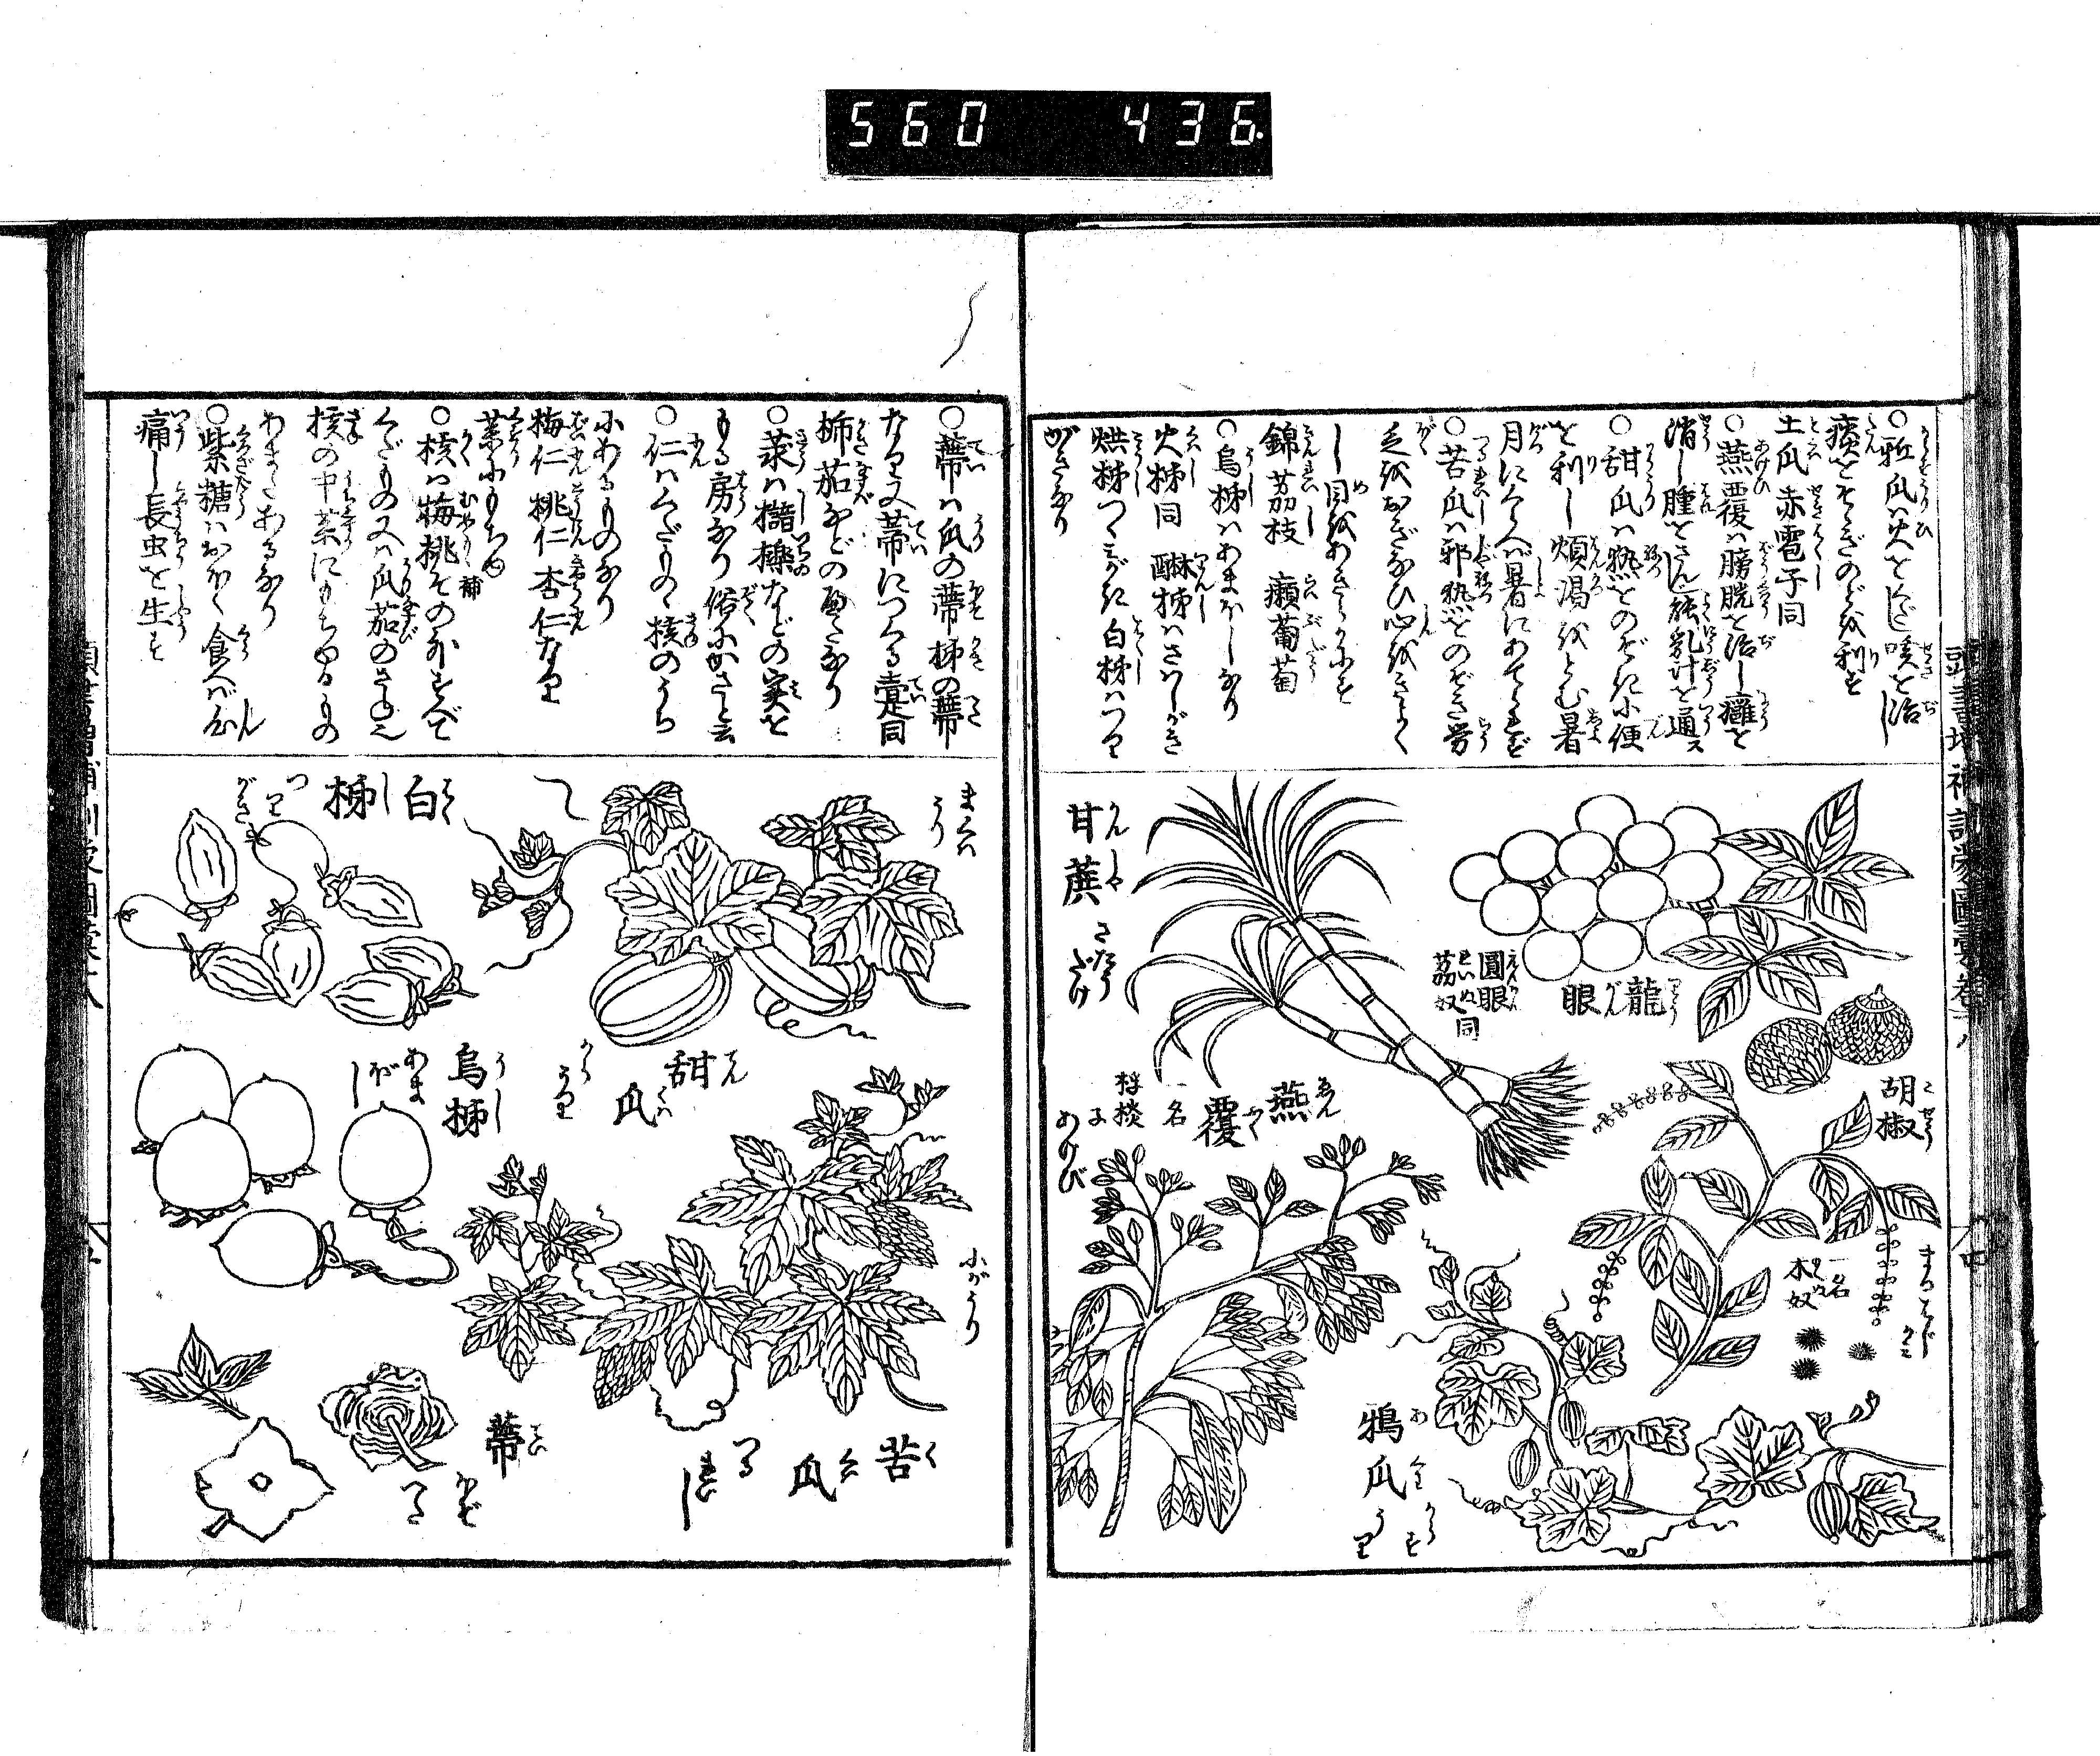 560 436
頭書増補訓蒙圖彙巻之八
○鴉瓜ハ火をくだし咳を治し
痰をそぎのどを利す
土瓜赤雹子同
○燕覆ハ膀胱を治し癰を
消し腫をさんじ乳汁を通ス
○甜瓜ハ熱をのぞき小便
を利し煩渇をとむ暑
月にくへバ暑にあてられず
○苦瓜ハ邪熱をのぞき労
乏をおぎなひ心をきよく
し目をあきらかにす
錦茘枝 癩葡萄
○烏柹ハあまぼしなり
火柹同 醂柹ハさハしがき
烘柹つゝみがき白柹ハつり
がきなり
龍眼
圓眼
茘奴同
甘蔗 さたうだけ
胡椒
一名
木奴
燕覆
一名
あけび
鴉瓜
からすうり
○蔕ハ瓜の蔕柹の蔕
なり又蒂につくる疐同
柹茄などのへたなり
○菉ハ櫧櫟などの実を
もる房なり俗にかさと云
○仁ハくだものゝ核のうち
にあるものなり
梅仁桃仁杏仁なり
薬にもちゆ
○核ハ梅桃そのほかすべて
くだもの又ハ瓜茄のさね也
核の中薬にもちゆるもの
あまたあるなり
○紫糖ハおほく食へバ心
痛し長虫を生ず
まくハうり
甜瓜
からうり
白柹
つりがき
烏柹
あまぼし
にがうり
苦瓜
つるれいし
蔕
ほぞ
へた